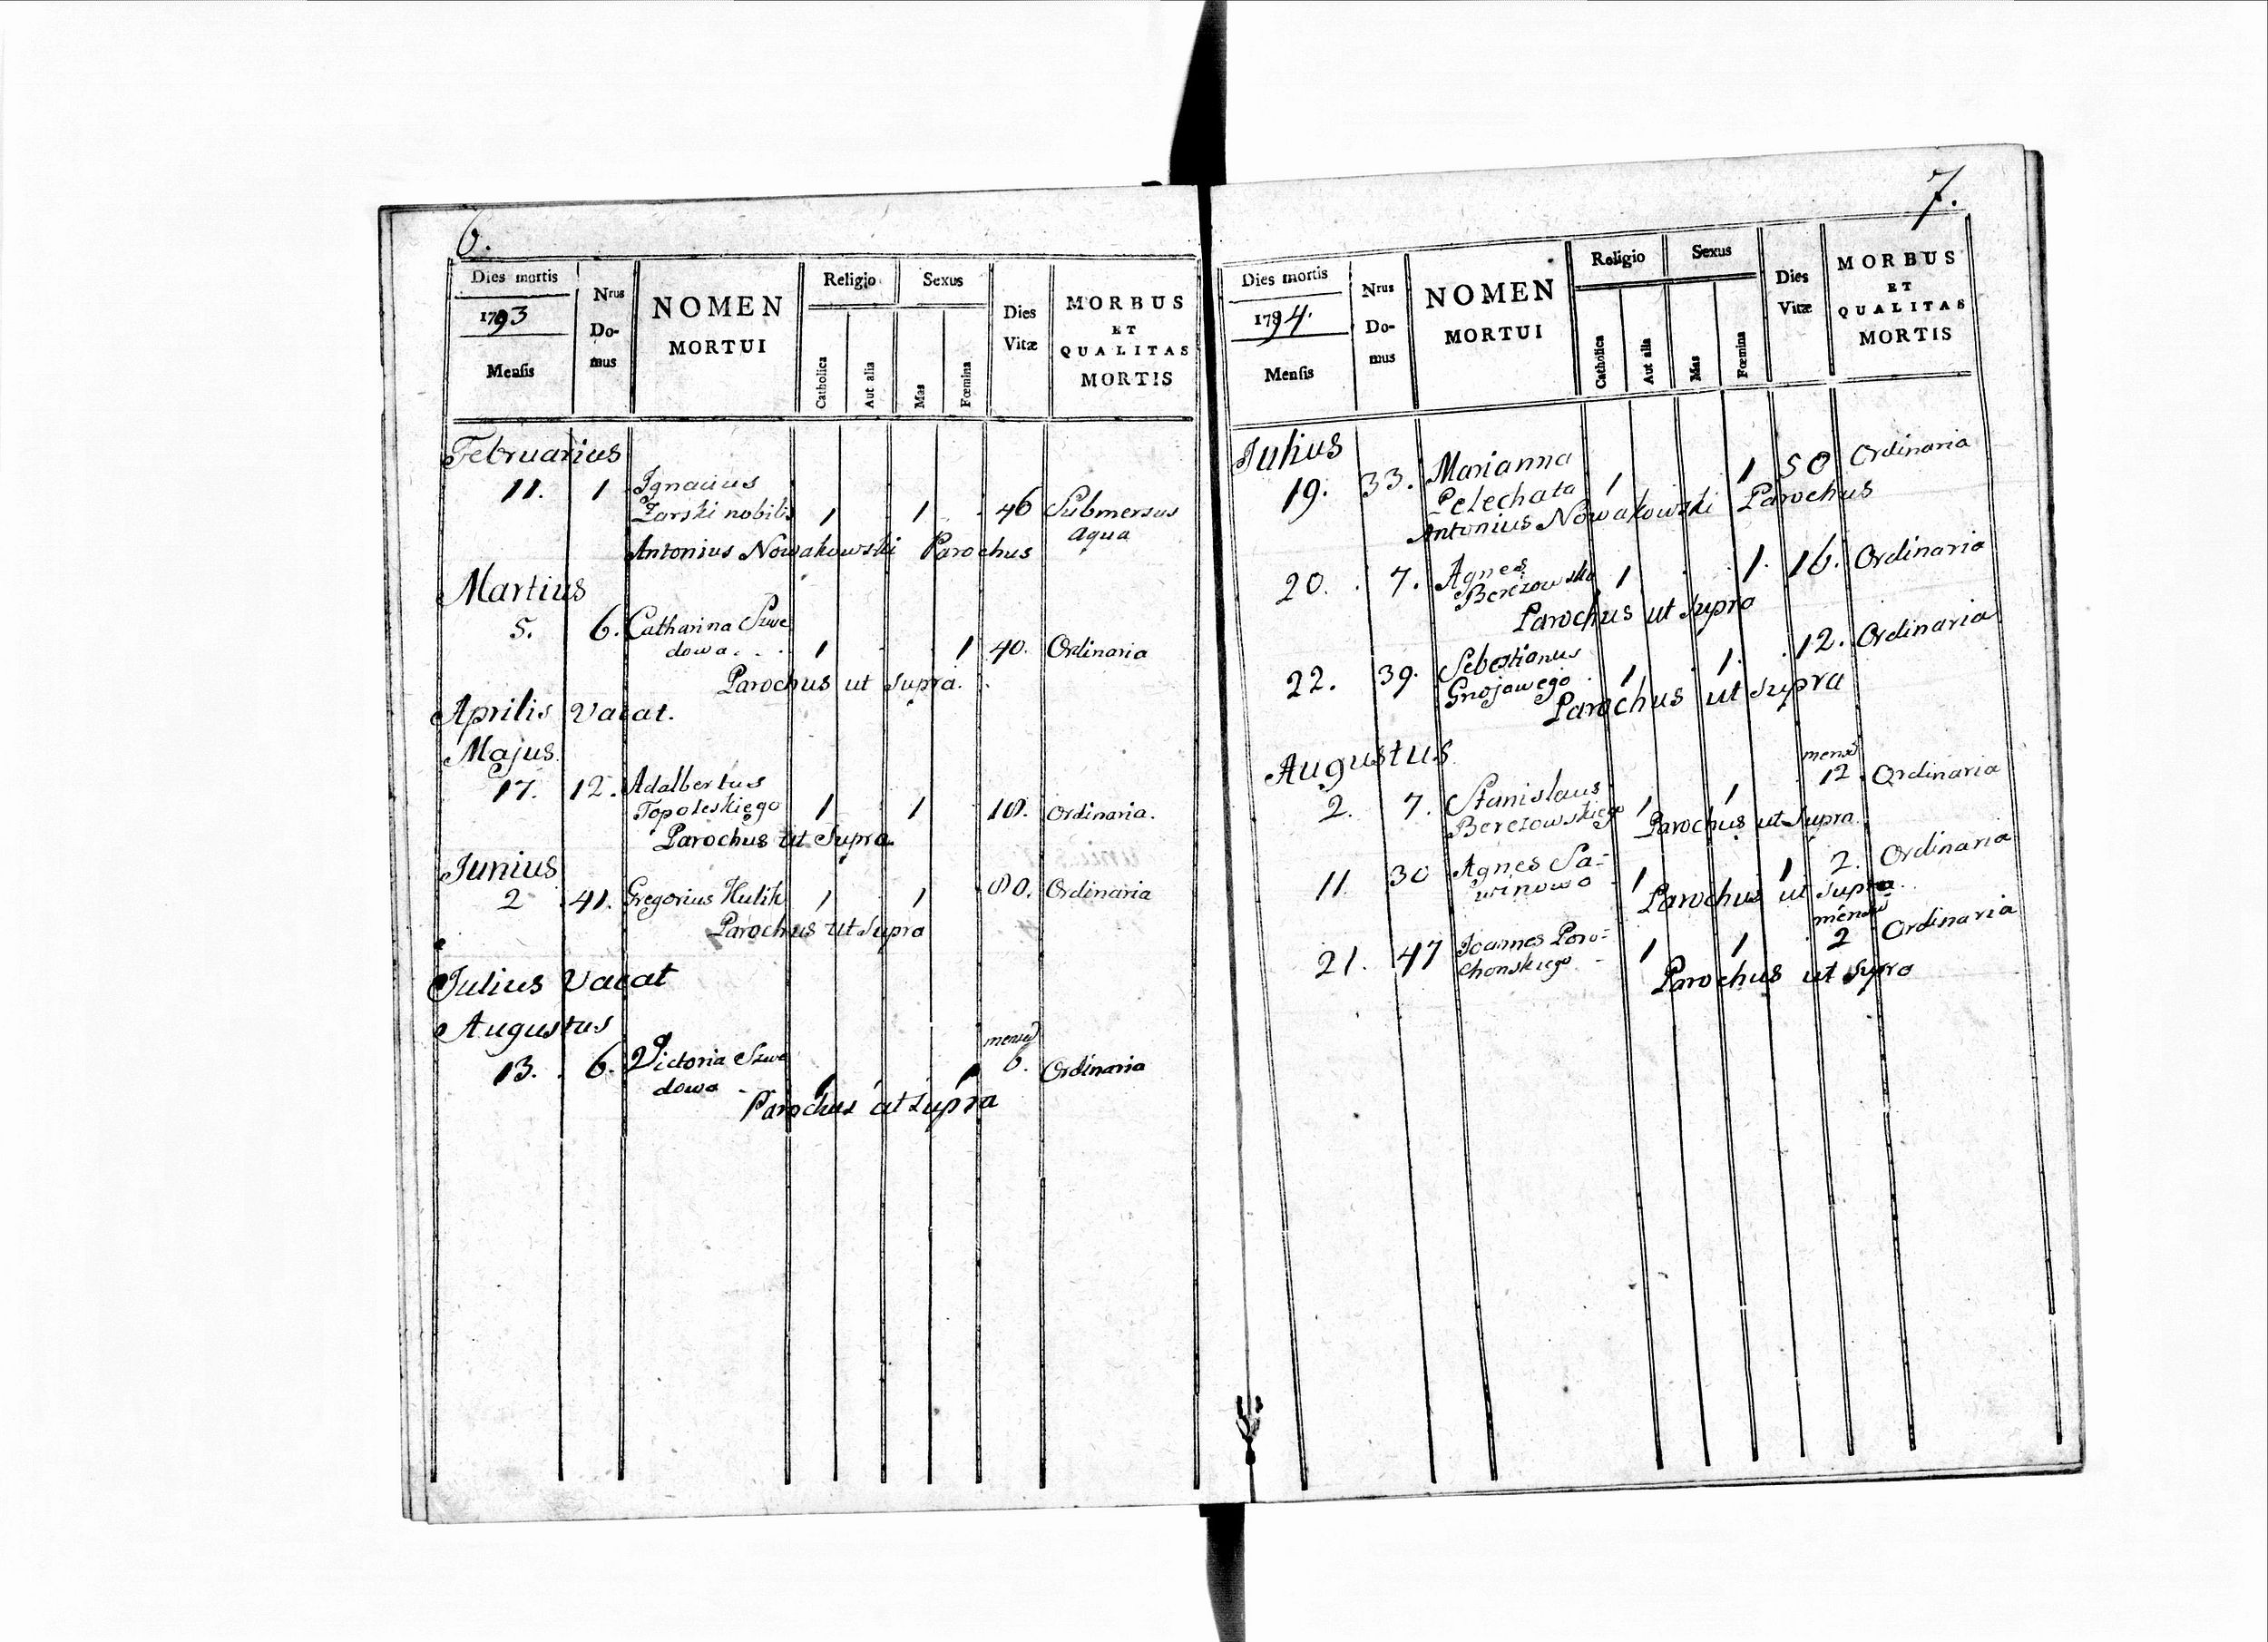 6.
Dies mortis
1793
Mensis
Nrus
Do-
mus
NOMEN
MORTUI
Religio
Catholica
Aut alia
Sexus
Mas
Fœmina
Dies
Vitæ
MORBUS
ET
QUALITAS
MORTIS
Februarius
11. 1 Ignacius
Żarski nobilis 1 1 46 Submersus
aqua
Antonius Nowakowski Parochus
Martius
5. 6. Catharina Szwe
dowa 1 1 40. Ordinaria
Parochus ut supra.
Aprilis Vacat.
Majus
17. 12. Adalbertus
Topoleskiego 1 1 Ordinaria.
Parochus ut Supra
Junius
2 41. Gregorius Hulik 1 1 Ordinaria
Parochus ut Supra
Julius Vacat
Augustus
13. 6. Victoria Szwe
dowa 1 1 6. Ordinaria
Parochus ut supra
7.
Dies mortis
1794.
Mensis
Nrus
Do-
mus
NOMEN
MORTUI
Religio
Catholica
Aut alia
Sexus
Mas
Fœmina
Dies
Vitæ
MORBUS
ET
QUALITAS
MORTIS
Julius
19. 33. Marianna
Pelechata 1 1 50 Ordinaria
Antonius Nowakowski Parochus
20. 7. Agnes
Berezowska 1 1. 16. Ordinaria
Parochus ut supra
22. 39. Sebastianus
Gnojowego 1 1. 12. Ordinaria
Parochus ut supra
Augustus
2. 7. Stanislaus
Berezowskiego 1 1 12 Ordinaria
Parochus ut Supra
11. 30 Agnes Sa-
winowa 1 1 2. Ordinaria
Parochus ut supra
21. 47 Joannes Poro-
chonskiego 1 1 2 Ordinaria
Parochus ut supra